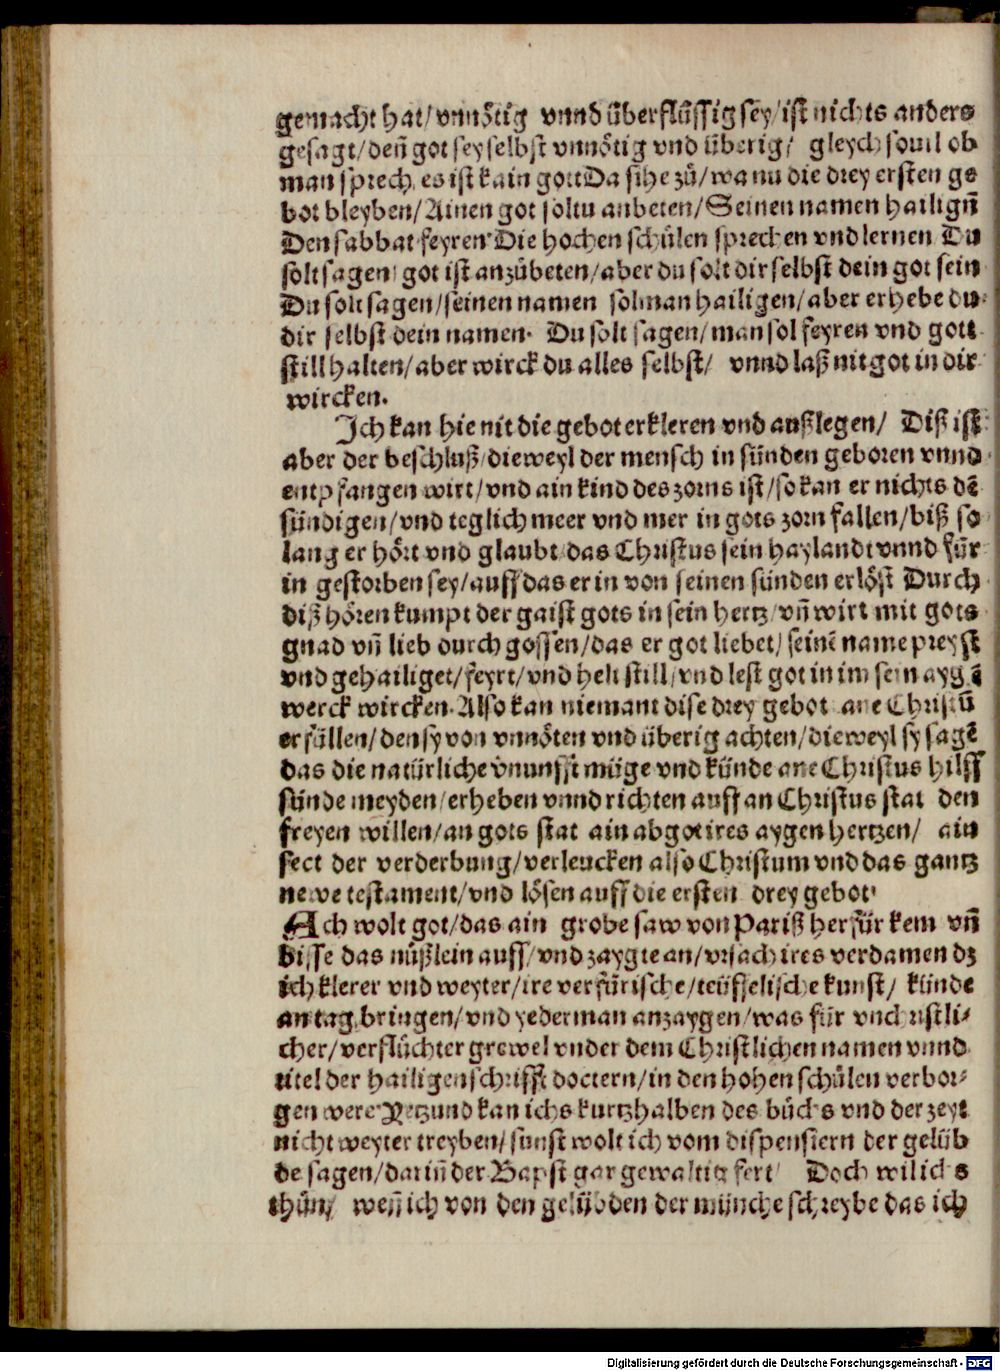 gemacht hat/vnnötig vnnd überflüssig sey/ist nichts anders
gesagt/deñ got sey selbst vnnötig vnd überig/ gleych souil ob
man sprech, es ist kain gott Da sihe zů/wa nu die drey ersten ge
bot bleyben/Ainen got soltu anbeten/Seinen namen hailigñ
Den sabbat feyren Die hochen schůlen sprechen vnd lernen Du
solt sagen/got ist anzůbeten/aber du solt dir selbst dein got sein
Du solt sagen/seinen namen sol man hailigen/aber erhebe du
dir selbst dein namen. Du solt sagen/man sol feyren vnd gott
still halten/aber wirck du alles selbst/ vnnd laß nit got in dir
wircken.
Ich kan hie nit die gebot erkleren vnd außlegen/ Diß ist
aber der beschluß/dieweyl der mensch in sünden geboren vnnd
entpfangen wirt/vnd ain kind des zorns ist/so kan er nichts dē
sündigen/vnd teglich meer vnd mer in gots zorn fallen/biß so
lang er hört vnd glaubt/das Christus sein haylandt vnnd für
in gestorben sey/auff das er in von seinen sünden erlöst Durch
diß hören kumpt der gaist gots in sein hertz/vñ wirt mit gots
gnad vñ lieb durch gossen/das er got liebet/seinē name preyst
vnd gehailiget/feyrt/vnd helt still/vnd lest got in im sein aygē
werck wircken. Also kan niemant dise drey gebot ane Christū
erfüllen/den sy von vnnöten vnd überig achten/dieweyl sy sagē
das die natürliche vnunfft müge vnd künde ane Christus hilff
sünde meyden/erheben vnnd richten auff an Christus stat den
freyen willen/an gots stat ain abgot ires aygen hertzen/ ain
sect der verderbung/verleucken also Christum vnd das gantz
newe testament/vnd lösen auff die ersten drey gebot.
Ach wolt got/das ain grobe saw von Pariß herfür kem vñ
bisse das nüßlein auff/vnd zaygte an/vrsach ires verdamen dz
ich klerer vnd weyter/ire verfürische/teüffelische kunst/ künde
an tag bringen/vnd yederman anzaygen/was für vnchristli⸗
cher/verflůchter grewel vnder dem Christlichen namen vnnd
titel der hailigen schrifft doctern/in den hohen schůlen verbor⸗
gen were Yetzund kan ichs kurtzhalben des bůchs vnd der zeyt
nicht weyter treyben/sunst wolt ich vom dispensiern der gelüb
de sagen/dariñ der Bapst gar gewaltig fert/ Doch wil ichs
thůn/ weñ ich von den gelübden der münche schreybe das ich
Digitalisierung gefördert durch die Deutsche Forschungsgemeinschaft - DFG